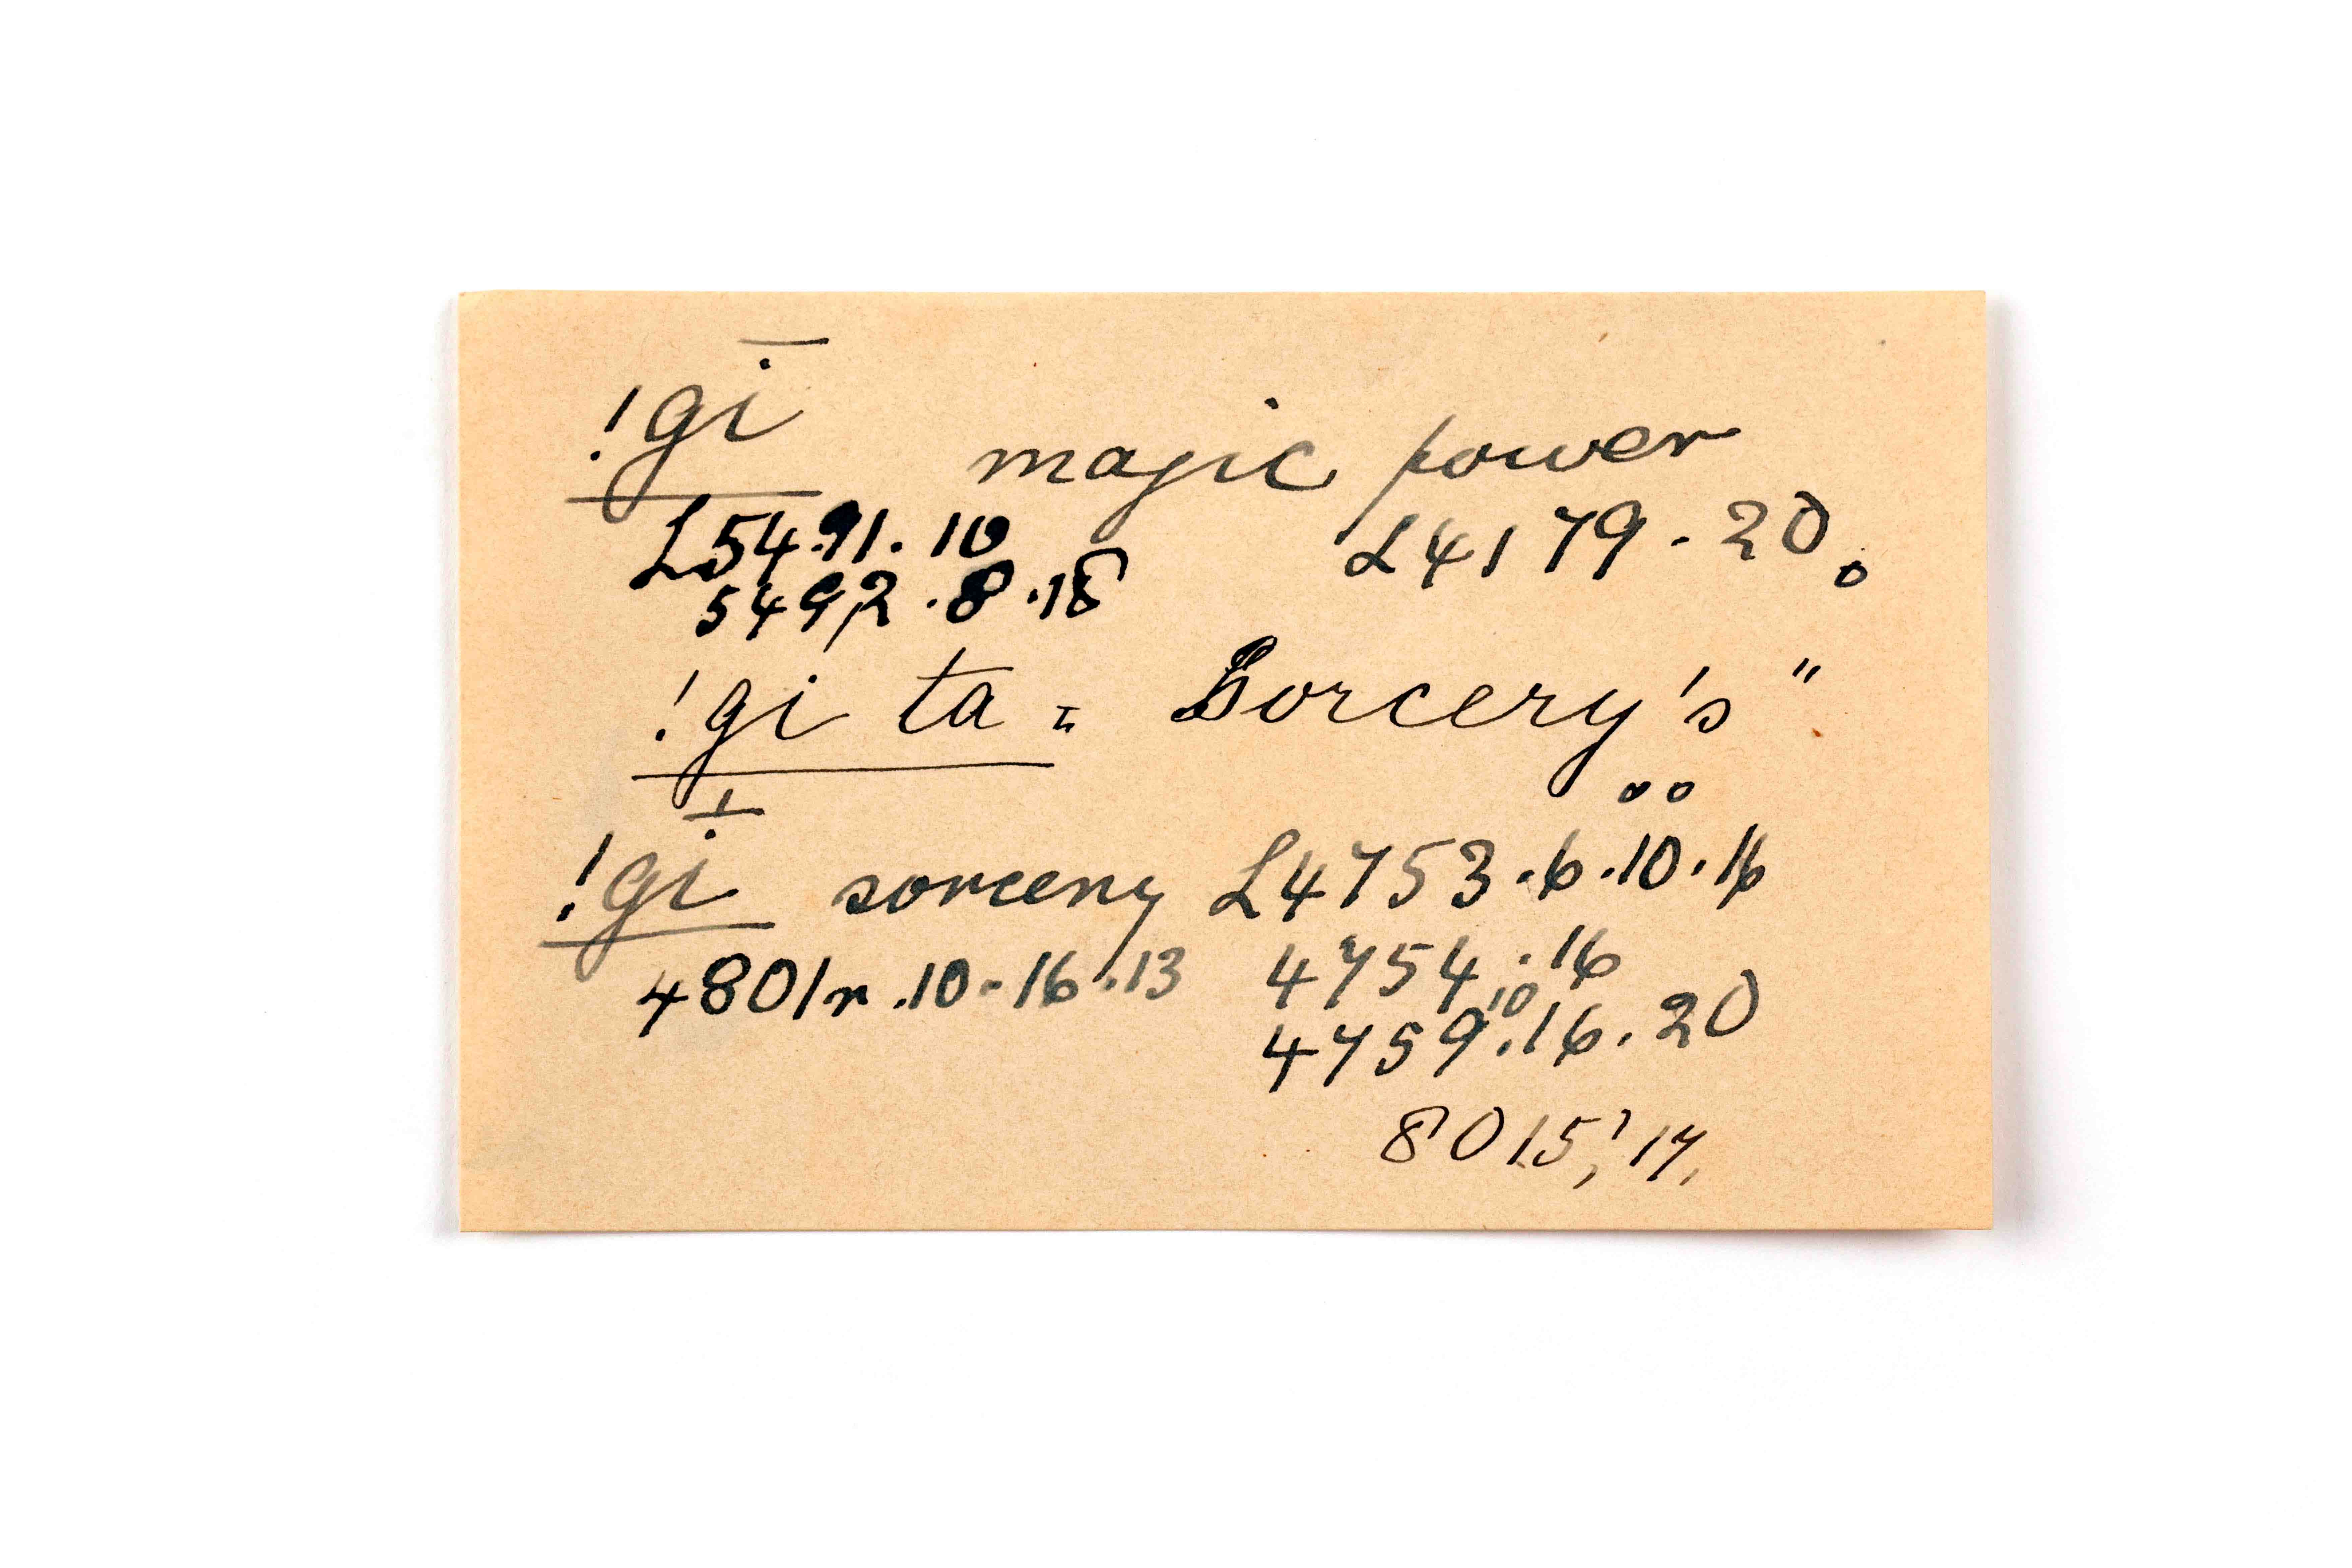 !gī magic power
L5491.10 L4179.20.
5492.8.18
!gi ta = Sorcery's"
!gī sorcery L4753.6.10.16
4801r.10.16.13 4754.16
4759.10.16.20
8015,'17.